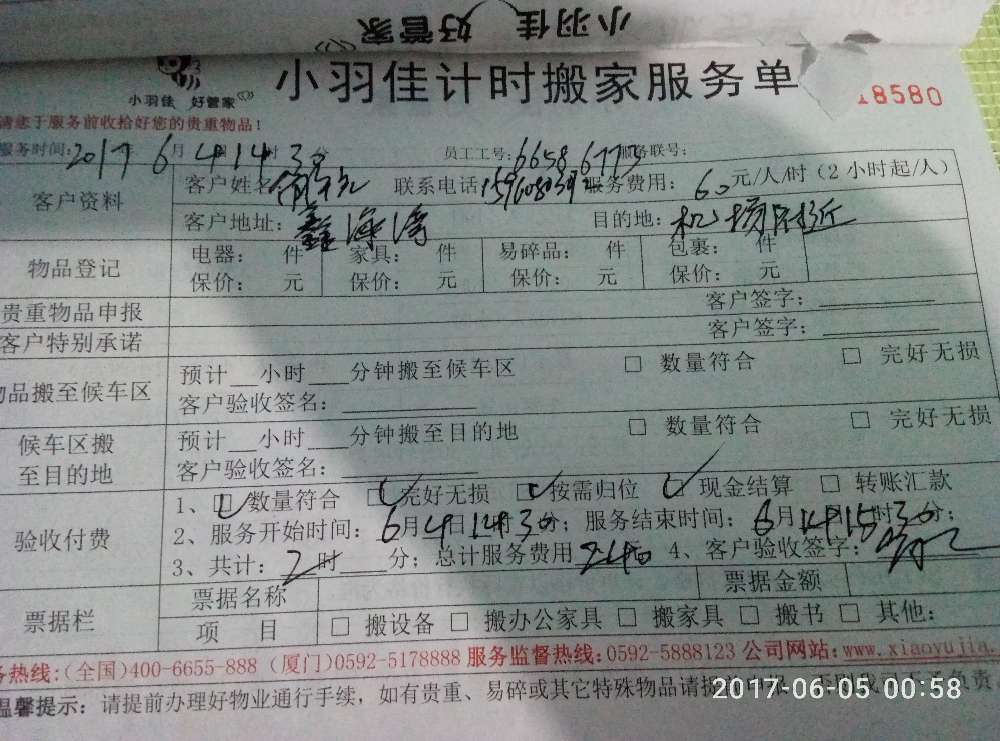 小羽佳 好管家
小羽佳 好管家
小羽佳计时搬家服务单
18580
请您于服务前收拾好您的贵重物品!
服务时间: 2017年 6月 4 14时 30分 员工工号: 6658 6773 服务联号:
客户资料
客户姓名 联系电话 服务费用: 60 元/人/时 (2小时起/人)
客户地址: 鑫海湾 目的地: 机场附近
物品登记
电器: 件 家具: 件 易碎品: 件 包裹: 件
保价: 元 保价: 元 保价: 元 保价: 元
贵重物品申报 客户签字:
客户特别承诺 客户签字:
物品搬至候车区
预计__小时___分钟搬至候车区 □ 数量符合 □ 完好无损
客户验收签名:
候车区搬至目的地
预计__小时___分钟搬至目的地 □ 数量符合 □ 完好无损
客户验收签名:
验收付费
1、☑数量符合 ☑完好无损 ☑按需归位 ☑现金结算 □ 转账汇款
2、服务开始时间: 6月4日14时30分; 服务结束时间: 6月 4 15时30分;
3、共计: 2时 分; 总计服务费用 240 4、客户验收签字:
票据栏
票据名称 票据金额
项 目 □ 搬设备 □ 搬办公家具 □ 搬家具 □ 搬书 □ 其他:
务热线:(全国)400-6655-888 (厦门)0592-5178888 服务监督热线:0592-5888123 公司网站:www.xiaoyujia.
温馨提示: 请提前办理好物业通行手续, 如有贵重、易碎或其它特殊物品请提
2017-06-05 00:58